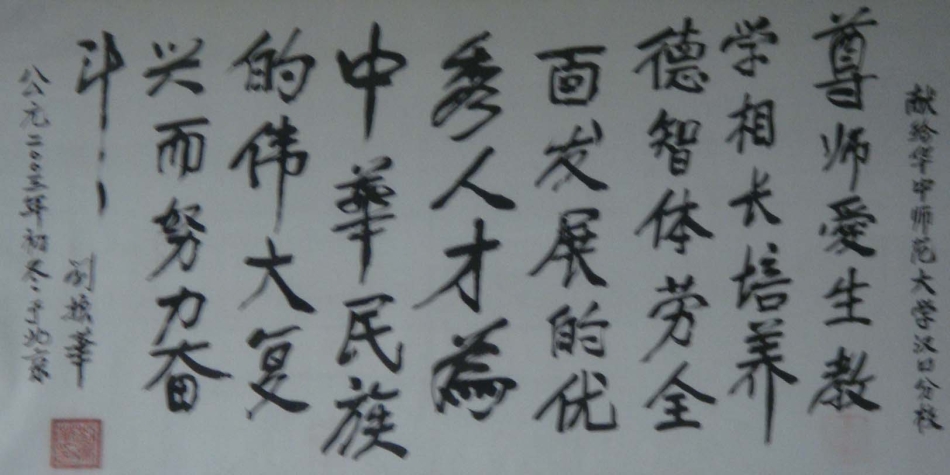 献给华中师范大学汉口分校
尊师爱生教
学相长培养
德智体劳全
面发展的优
秀人才为
中華民族
的伟大复
兴而努力奋
斗!
刘振華
公元二〇〇三年初冬于北京